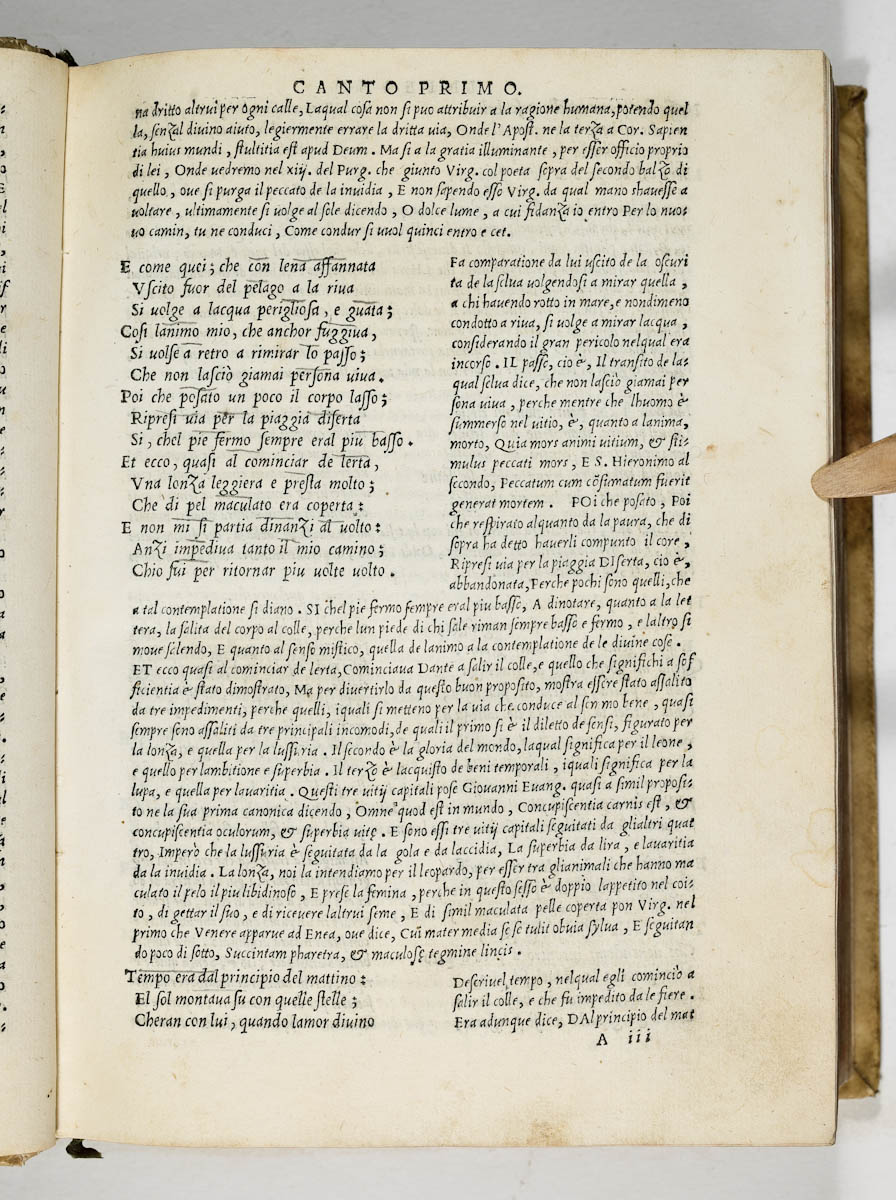 CANTO PRIMO.
na dritto altrui per ogni calle, Laqual cosa non si puo attribuir a la ragione humana, potendo quel
la, senzal divino aiuto, legiermente errare la dritta uia, Onde l'Apost. ne la terza a Cor. Sapien
tia huius mundi, stultitia est apud Deum. Ma si a la gratia illuminante, per esser officio proprio
di lei, Onde uedremo nel xiij. del Purg. che giunto Virg. col poeta sopra del secondo balzo di
quello, oue si purga il peccato de la inuidia, E non sapendo esso Virg. da qual mano shauesse a
uoltare, ultimamente si uolge al sole dicendo, O dolce lume, a cui fidanza io entro Per lo nuo
uo camin, tu ne conduci, Come condur si uuol quinci entro e cet.
E come quei; che con lena affannata
Vscito fuor del pelago a la riua
Si uolge a lacqua perigliosa, e guata;
Cosi lanimo mio, che anchor fuggiua,
Si uolse a retro a rimirar lo passo;
Che non lasciò giamai persona uiua.
Poi che posato un poco il corpo lasso;
Ripresi uia per la piaggia diserta
Si, chel pie fermo sempre eral piu basso.
Et ecco, quasi al cominciar de lerta,
Vna lonza leggiera e presta molto;
Che di pel maculato era coperta:
E non mi si partia dinanzi al uolto:
Anzi impediua tanto il mio camino;
Chio fui per ritornar piu uolte uolto.
Fa comparatione da lui uscito de la oscuri
ta de la selua uolgendosi a mirar quella,
a chi hauendo rotto in mare, e nondimeno
condotto a riua, si uolge a mirar lacqua,
considerando il gran pericolo nelqual era
incorso. IL passo, cio è, Il transito de la-
qual selua dice, che non lasciò giamai per
sona uiua, perche mentre che lhuomo è
summerso nel uitio, è, quanto a lanima,
morto, Quia mors animi uitium, & sti-
mulus peccati mors, E S. Hieronimo al
secondo, Peccatum cum cōsumatum fuerit
generat mortem. POi che posato, Poi
che respirato alquanto da la paura, che di
sopra ha detto hauerli compunto il core,
Ripresi uia per la piaggia DIserta, cio è,
abbandonata, Perche pochi sono quelli, che
a tal contemplatione si diano. SI chel pie fermo sempre eral piu basso, A dinotare, quanto a la let
tera, la salita del corpo al colle, perche lun piede di chi sale riman sempre basso e fermo, e laltro si
moue salendo, E quanto al senso mistico, quella de lanimo a la contemplatione de le diuine cose.
ET ecco quasi al cominciar de lerta, Cominciaua Dante a salir il colle, e quello che significhi a sof
ficientia è stato dimostrato, Ma per diuertirlo da questo buon proposito, mostra essere stato assalito
da tre impedimenti, perche quelli, iquali si metteno per la uia che conduce al sommo bene, quasi
sempre sono assaliti da tre principali incomodi, de quali il primo si è il diletto de sensi, figurato per
la lonza, e quella per la lussuria. Il secondo è la gloria del mondo, laqual significa per il leone,
e quello per lambitione e superbia. Il terzo è lacquisto de beni temporali, iquali significa per la
lupa, e quella per lauaritia. Questi tre uitij capitali pose Giouanni Euang. quasi a simil proposi-
to ne la sua prima canonica dicendo, Omne quod est in mundo, Concupiscentia carnis est, &
concupiscentia oculorum, & superbia uitę. E sono essi tre uitij capitali seguitati da glialtri quat
tro, Imperò che la lussuria è seguitata da la gola e da laccidia, La superbia da lira, e lauaritia
da la inuidia. La lonza, noi la intendiamo per il leopardo, per esser tra glianimali che hanno ma
culato il pelo il piu libidinoso, E prese la femina, perche in questo sesso è doppio lappetito nel coi-
to, di gettar il suo, e di riceuere laltrui seme, E di simil maculata pelle coperta pon Virg. nel
primo che Venere apparue ad Enea, oue dice, Cui mater media sese tulit obuia sylua, E seguitan
do poco di sotto, Succintam pharetra, & maculosę tegmine lincis.
Tempo era dal principio del mattino:
El sol montaua su con quelle stelle;
Cheran con lui, quando lamor diuino
Descriuel tempo, nelqual egli cominciò a
salir il colle, e che fu impedito da le fiere.
Era adunque dice, DAl principio del mat
A iii